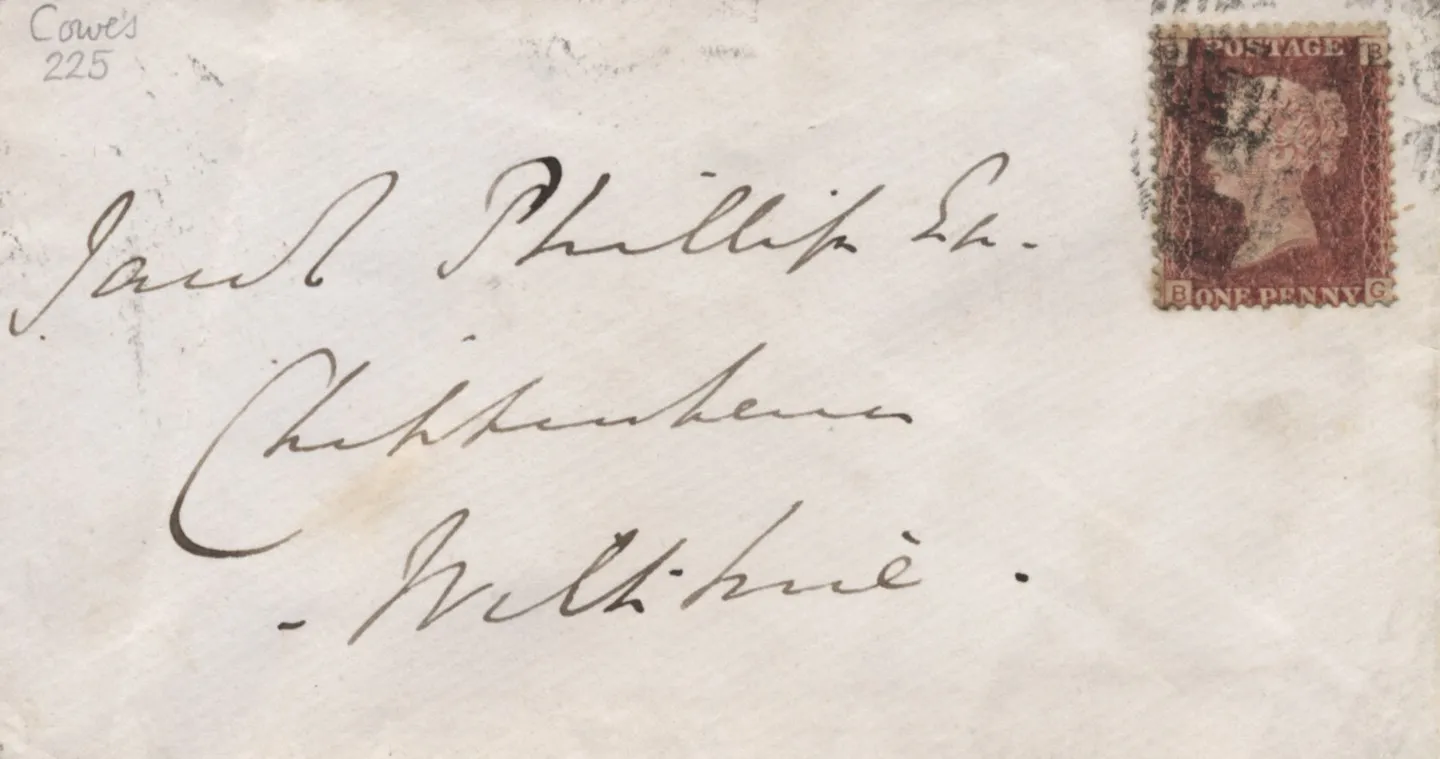 Cowe's
225
POSTAGE B
B ONE PENNY G
Phillips Esq.
Chippenham
- Wiltshire .